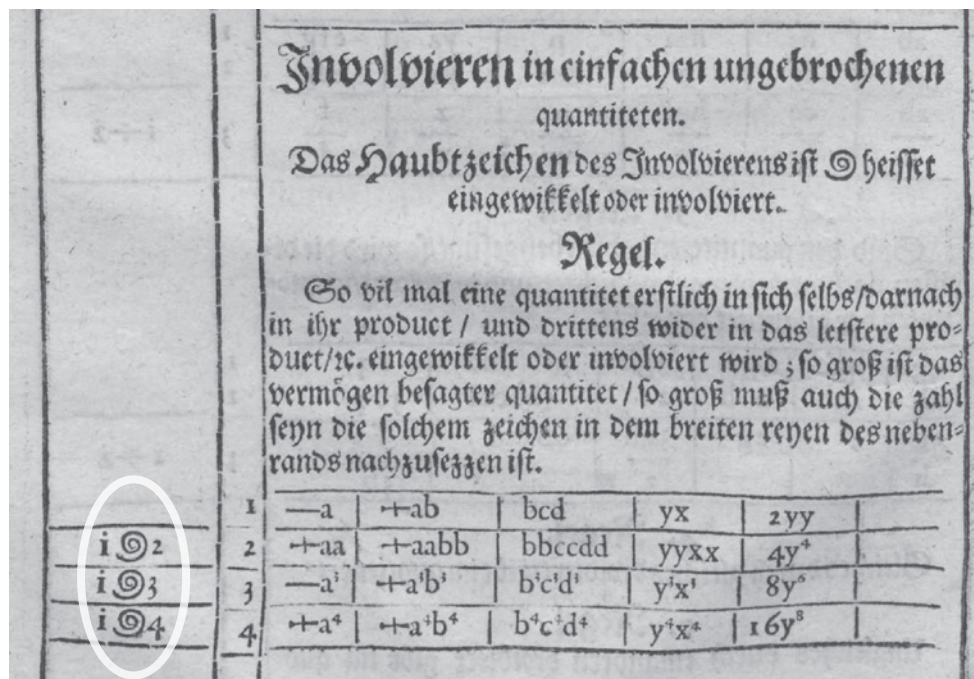 Involvieren in einfachen ungebrochenen
quantiteten.
Das Haubtzeichen des Involvierens ist ௭ heisset
eingewikkelt oder involviert.
Regel.
So vil mal eine quantitet erstlich in sich selbs/darnach
in ihr product / und drittens wider in das letstere pro-
duct/ꝛc. eingewikkelt oder involviert wird ; so groß ist das
vermögen besagter quantitet / so groß muß auch die zahl
seyn die solchem zeichen in dem breiten reyen des neben-
rands nachzusezzen ist.
1 —a +ab bcd yx 2yy
i ௭ 2 2 +aa +aabb bbccdd yyxx 4y⁴
i ௭ 3 3 —a³ +a³b³ b³c³d³ y³x³ 8y⁶
i ௭ 4 4 +a⁴ +a⁴b⁴ b⁴c⁴d⁴ y⁴x⁴ 16y⁸